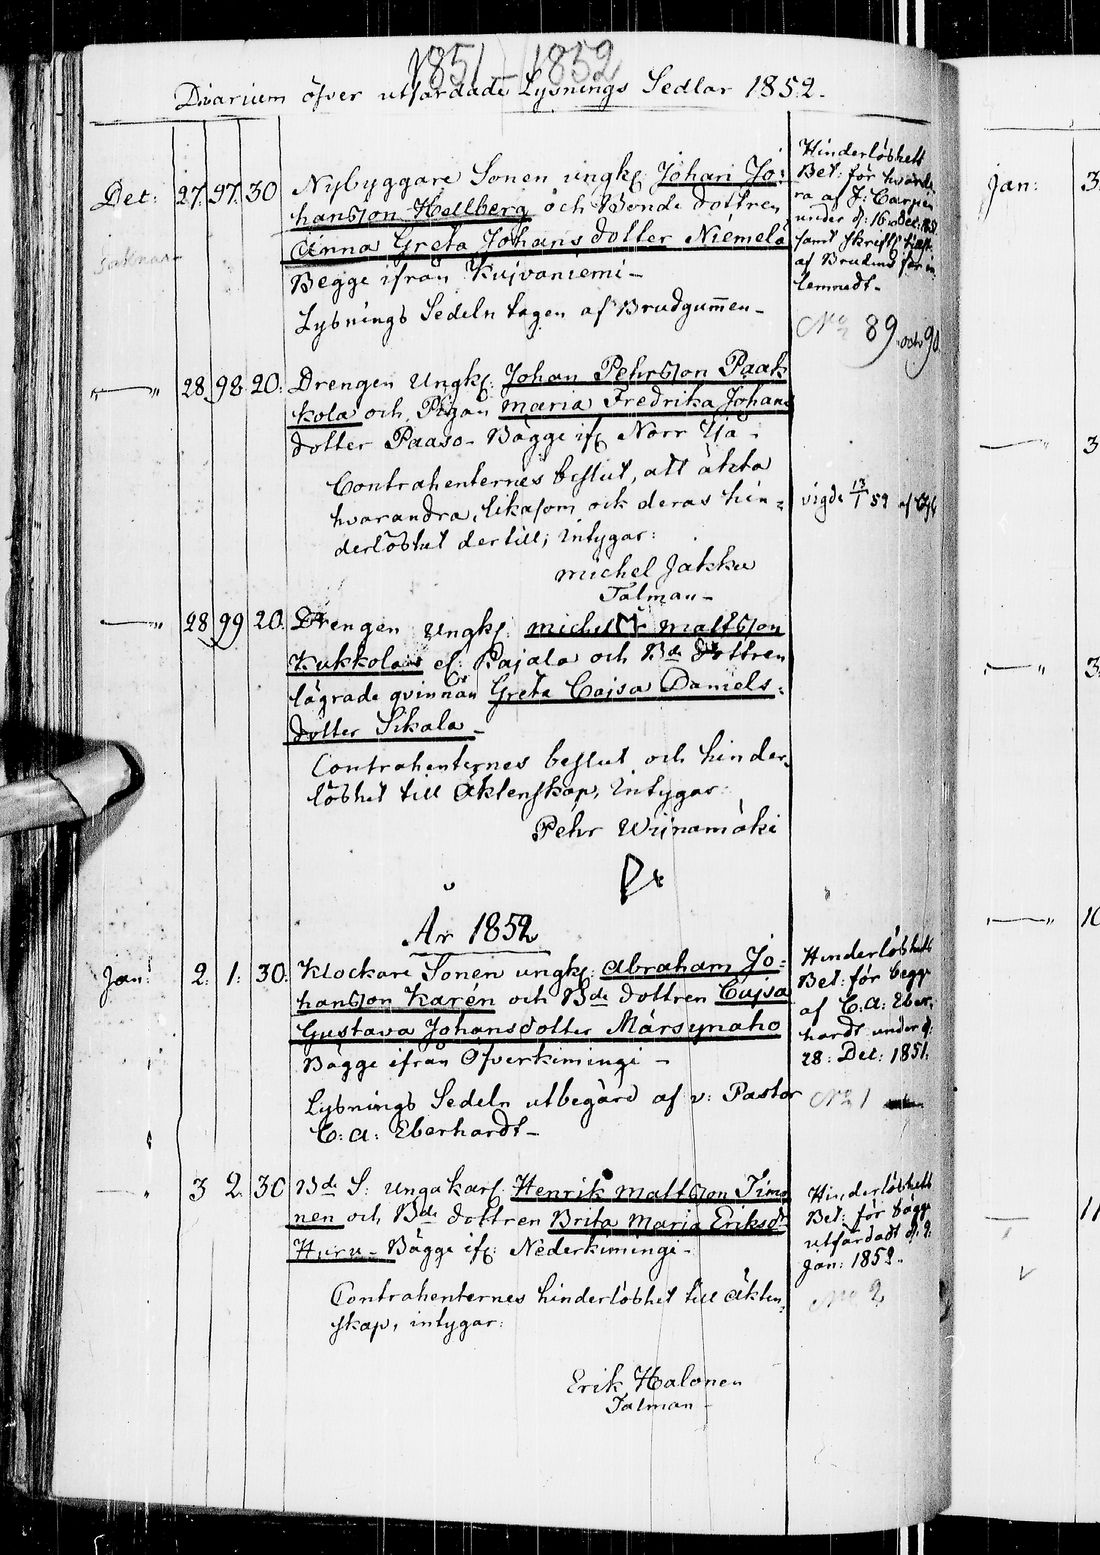 1851-1852
Diarium öfver utfärdade Lysnings Sedlar 1852.
Det: 27. 97. 30 Nybyggare Sonen ungk: Johan Jo:
hansson Hellberg och Bonde dottren
Anna Greta Johans dotter Niemelä
Begge ifrån Kuivaniemi-
Lysnings Sedeln tagen af Brudgum̄en-
Hinderlöshets
Bet: för hvard:
ra af J: Carpen
under d: 16 Dec:
samt skriftl:
af Brudens
lemnadt-
No 89 och 90.
-„- 28. 98. 20. Drengen Ungk: Johan Pehrsson Paak
kola och Pigan Maria Fredrika Johans
dotter Paaso- Bägge if: Norr Ijå-
Contrahenternes beslut, att äkta
hvarandra, likasom ock deras hin=
derlöshet dertill; intygar:
Michel Jakku
Talman-
vigde 13/1 52 af
-„- 28 99 20. Drengen Ungk: Michel Mattsson
Kukkola ef: Pajala och Bde dottren
lägrade qvinnan Greta Cajsa Daniels=
dotter Sikala-
Contrahenternes beslut och hinder=
löshet till Äktenskap, intygar:
Pehr Wijnamäki
År 1852
Jan: 2. 1. 30. Klockare Sonen ungk: Abraham Jo=
hansson Karén och Bde dottren Cajsa
Gustava Johansdotter Märsynaho
Bägge ifrån Öfverkimingi-
Lysnings Sedeln utbegärd af v: Pastor
C: A: Eberhardt-
Hinderlöshets
Bet: för begge
af C: A: Eber=
hardt under d:
28: Det: 1851.
No 1
-„- 3 2 30 Bde S: Ungakarl Henrik Mattsson Timo
nen och Bde dottren Brita Maria Eriksdr
Huru- Bägge if: Nederkimingi-
Contrahenternes hinderlöshet till äkten=
skap, intygar:
Erik Halonen
Talman-
Hinderlöshets
Bet: för bägge
utfärdadt d. 2.
Jan: 1852.
No 2
Jan: 3
-„- 3
-„- 3
-„- 10
11